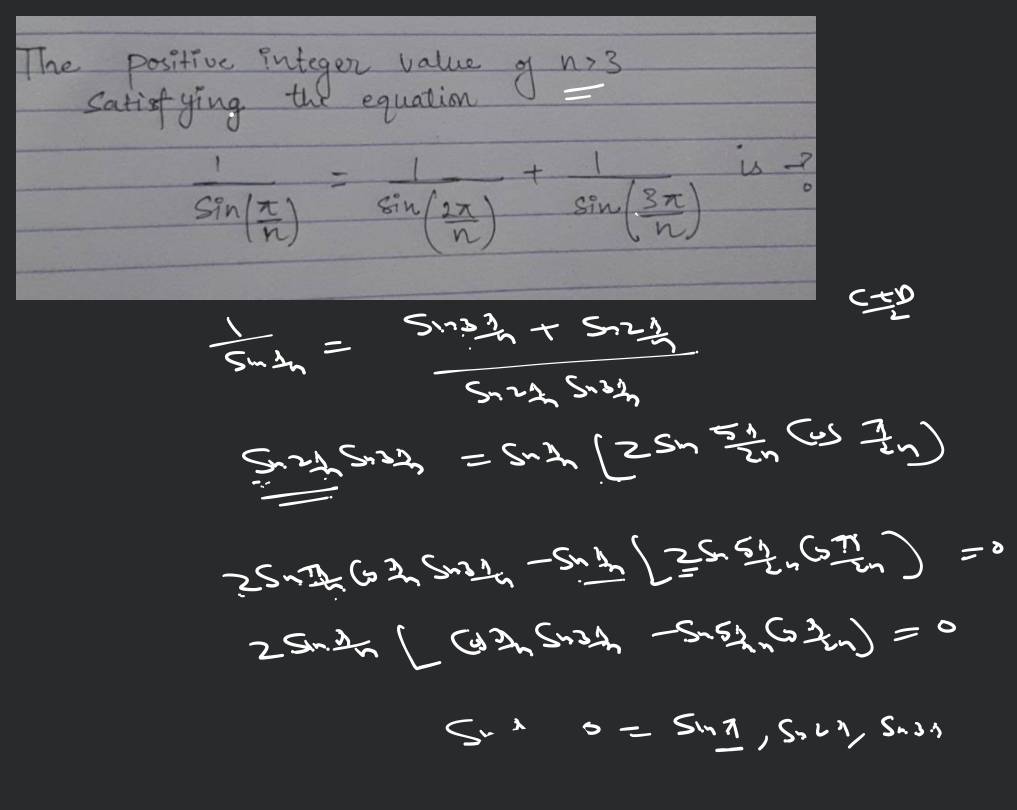 The positive integer value of n>3
satisfying the equation
1/Sin(π/n) = 1/sin(2π/n) + 1/sin(3π/n) is ?
C±D/2
1/Sin π/n = (Sin3π/n + Sin2π/n)/(Sin2π/n Sin3π/n)
Sin2π/n Sin3π/n = Sin π/n [2 Sin 5π/2n Cos π/2n]
2Sin π/n Cos π/n Sin3π/n - Sin π/n [2Sin 5π/2n Cos π/2n] = 0
2 Sin π/n [Cos π/n Sin3π/n - Sin5π/2n Cos π/2n] = 0
0 = Sin π, Sin 2π, Sin 3π